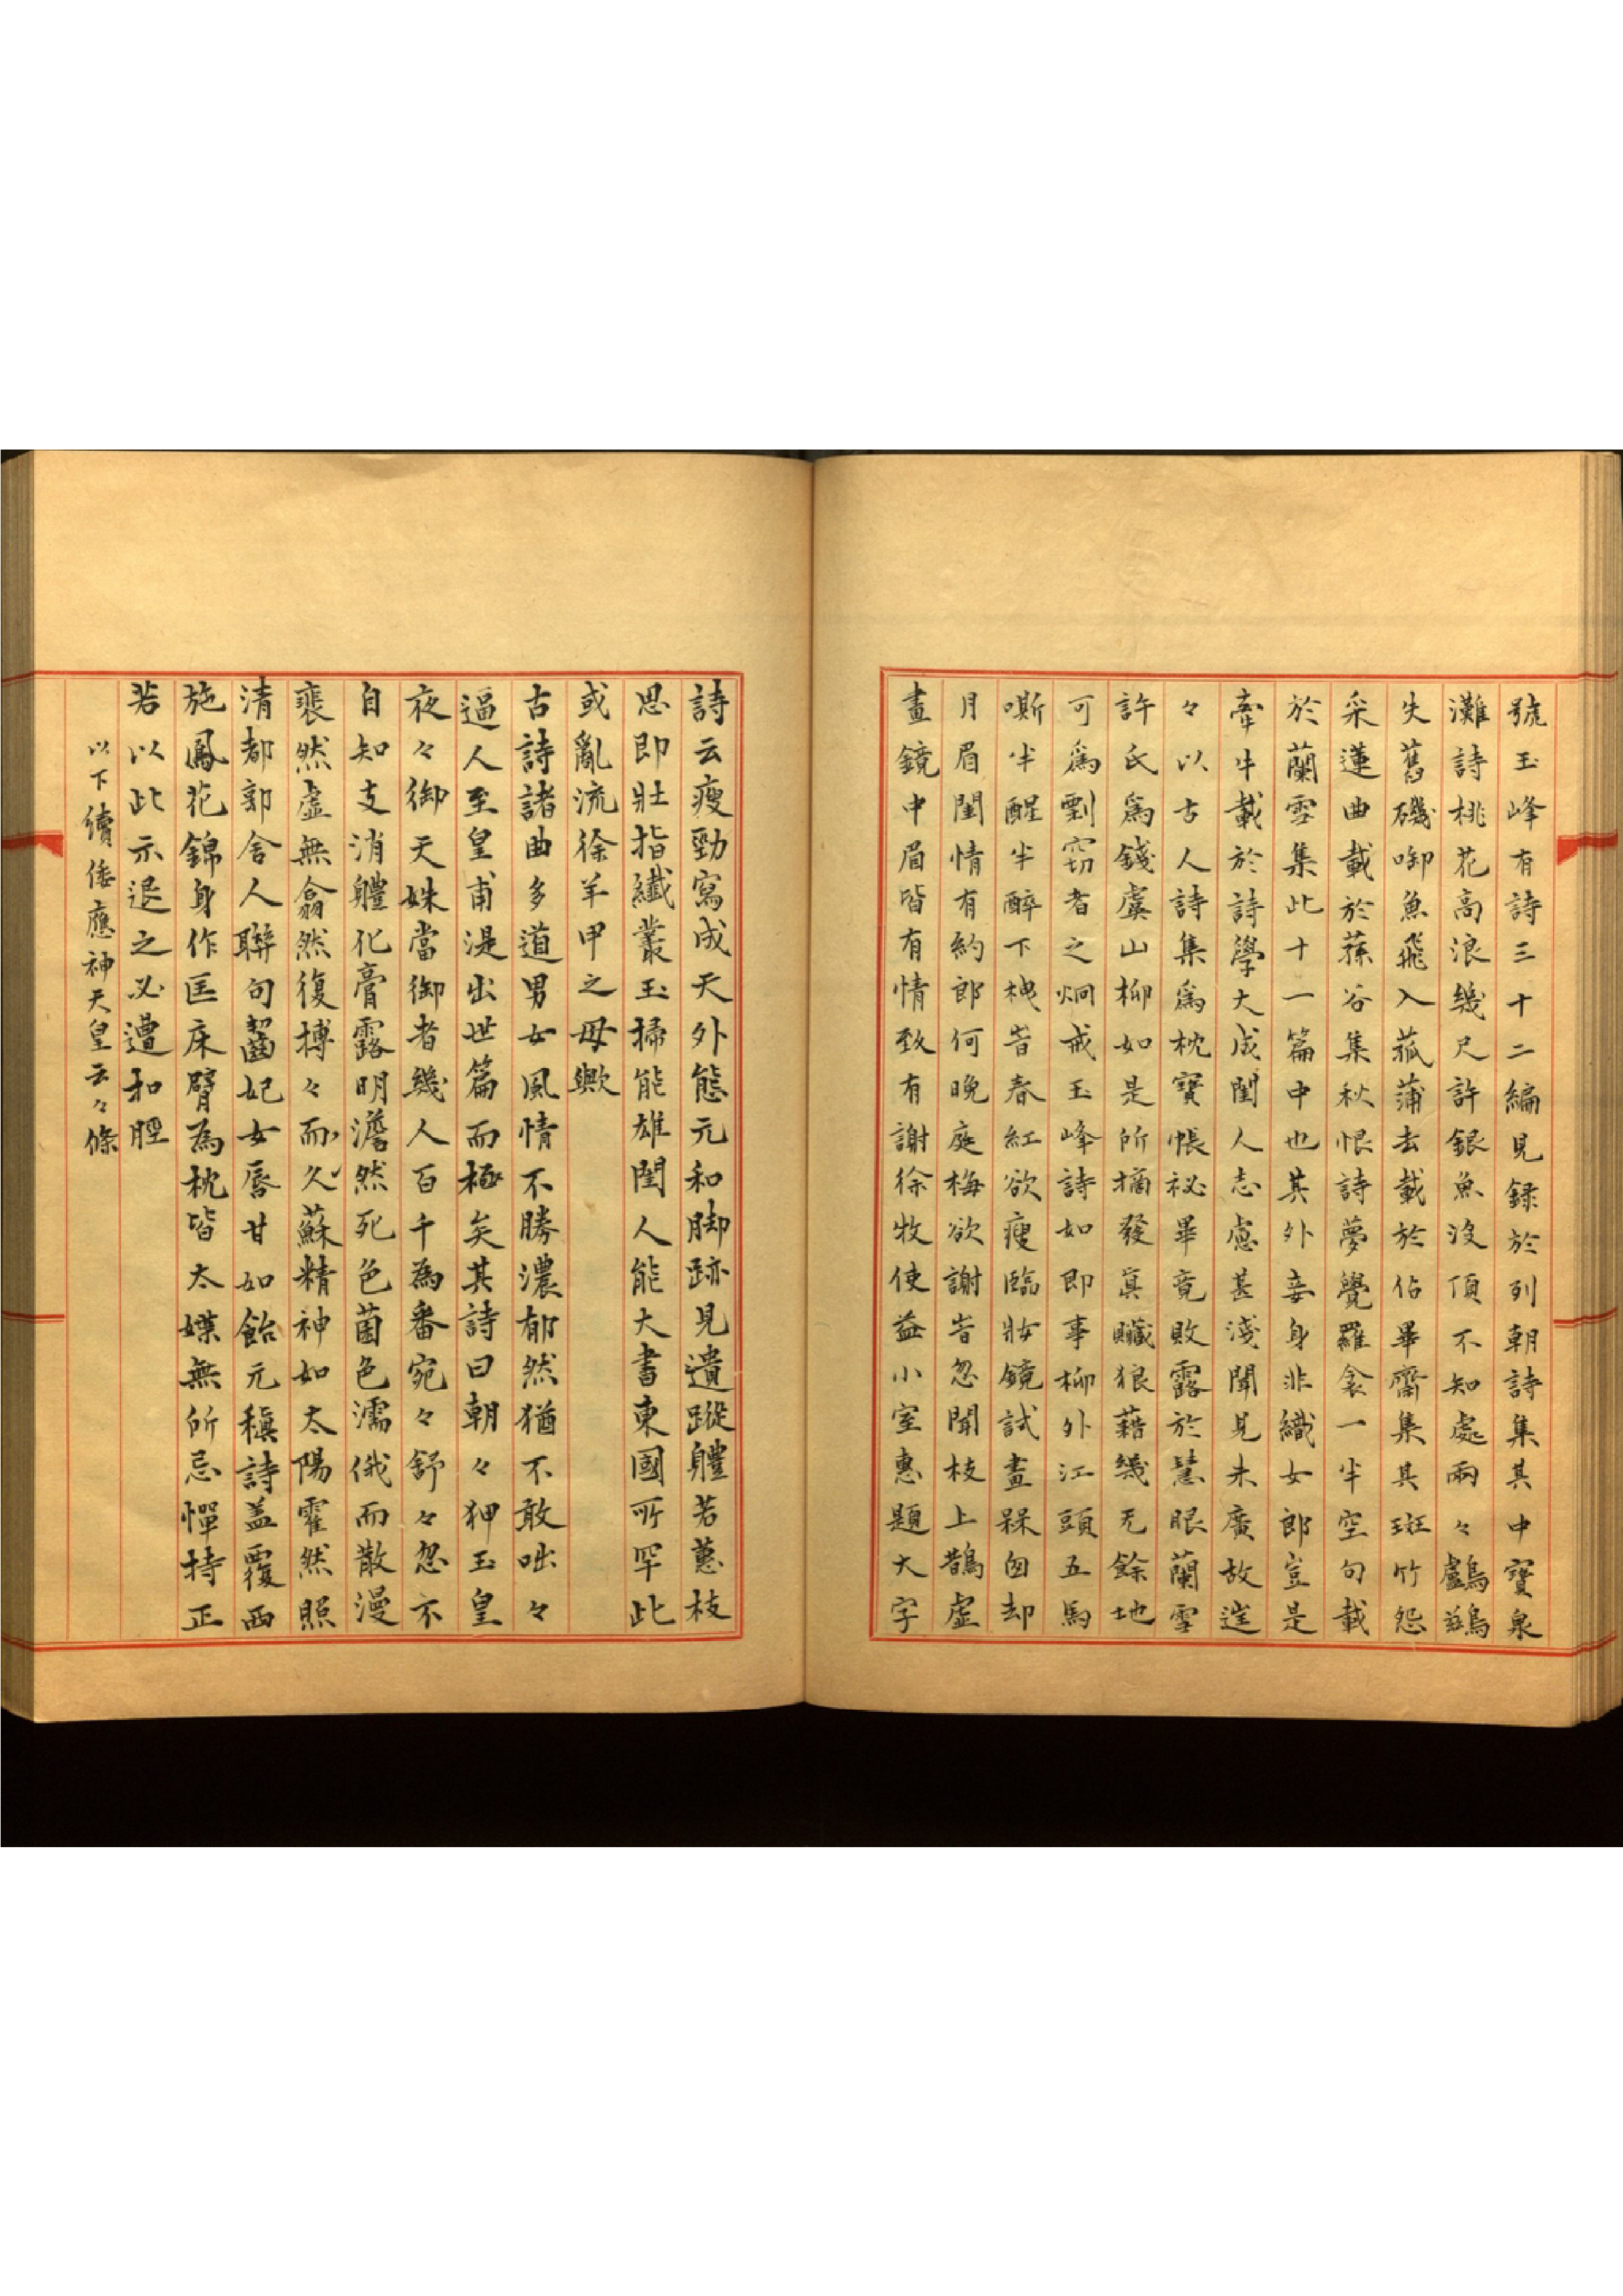 號玉峰有詩三十二編見録於列朝詩集其中寶泉
灘詩桃花高浪幾尺許銀魚沒頂不知處兩々鸕鷀
失舊磯啣魚飛入菰蒲去載於佔畢齋集其斑竹怨
采蓮曲載於蓀谷集秋恨詩夢覺羅衾一半空句載
於蘭雪集此十一篇中也其外妾身非織女郎豈是
牽牛載於詩學大成閨人志慮甚淺聞見未廣故遑
々以古人詩集爲枕寶帳祕畢竟敗露於慧眼蘭雪
許氏爲錢虞山柳如是所摘發眞贓狼藉幾无餘地
可爲剽窃者之炯戒玉峰詩如即事柳外江頭五馬
嘶半醒半醉下樓旹春紅欲瘦臨妝鏡試畫槑囪却
月眉閨情有約郎何晚庭梅欲謝旹忽聞枝上鵲虛
畫鏡中眉皆有情致有謝徐牧使益小室惠題大字
詩云瘦勁寫成天外態元和脚跡見遺蹤軆若蕙枝
思即壯指纖叢玉掃能雄閨人能大書東國所罕此
或亂流徐羊甲之母歟
古詩諸曲多道男女風情不勝濃郁然猶不敢咄々
逼人至皇甫湜出世篇而極矣其詩曰朝々狎玉皇
夜々御天姝當御者幾人百千為番宛々舒々忽不
自知支消軆化膏露明澹然死色菌色濡俄而散漫
裴然虛無翕然復摶々而久蘇精神如太陽霍然照
清都郭舍人聯句齧妃女唇甘如飴元稹詩蓋覆西
施鳳花錦身作匡床臂為枕皆太媟無所忌憚持正
若以此示退之必遭扣脛
以下續倭應神天皇云々條